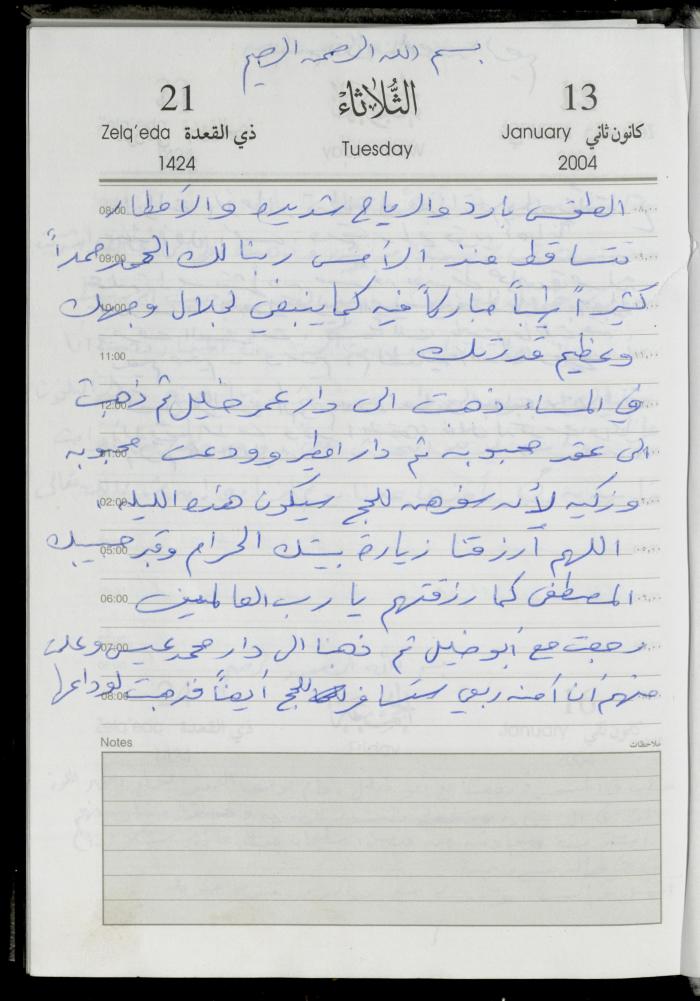 بسم الله الرحمن الرحيم
21 الثلاثاء 13
Zelq'eda ذي القعدة Tuesday January كانون ثاني
1424 2004
08:00 الطقس بارد والرياح شديده والأمطار
09:00 تتساقط منذ الأمس ربنا لك الحمد حمداً
10:00 كثيراً طيباً مباركاً فيه كما ينبغي لجلال وجهك
11:00 وعظيم قدرتك
12:00 في المساء ذهبت الى دار عمر خليل ثم ذهبت
01:00 الى عقد محبوبه ثم دار امطير وودعت محبوبه
02:00 وزكيه لأنه سفرهم للحج سيكون هذه الليله
05:00 اللهم أرزقنا زيارة بيتك الحرام وقبر حبيبك
06:00 المصطفى كما رزقتهم يا رب العالمين
07:00 رجعت مع أبو خليل ثم ذهبنا الى دار محمد عيسى وعلمت
08:00 منهم أن آمنه ربعي ستسافر للحج أيضاً فذهبت لوداعها
Notes ملاحظات